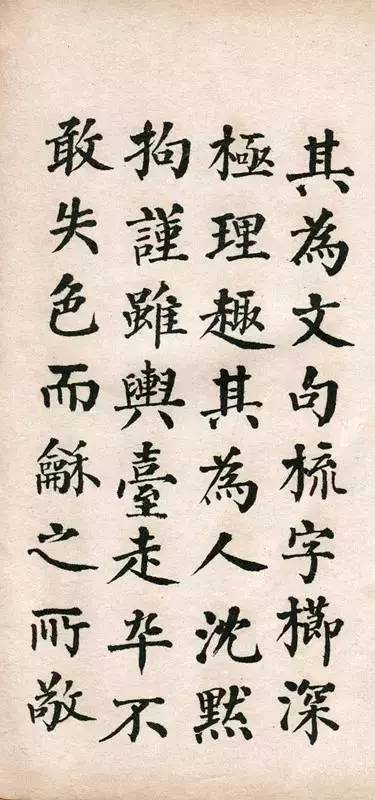 其為文句梳字櫛深
極理趣其為人沈默
拘謹雖輿臺走卒不
敢失色而龢之所敬